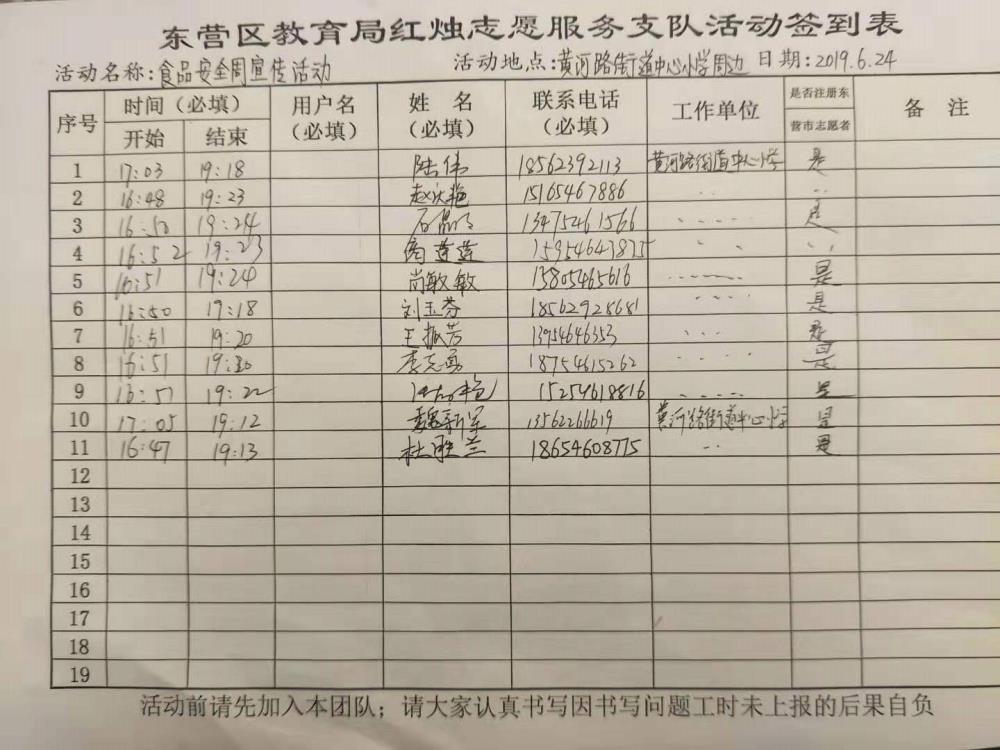 东营区教育局红烛志愿服务支队活动签到表
活动名称:食品安全周宣传活动 活动地点:黄河路街道中心小学周边 日期:2019.6.24
序号 时间（必填） 开始 结束 用户名（必填） 姓 名（必填） 联系电话（必填） 工作单位 是否注册东营市志愿者 备 注
1 17:03 19:18 陆伟 18562392113 黄河路街道中心小学 是
2 16:48 19:23 赵庆艳 15165467886 〃
3 16:50 19:24 石晶 13475461566 〃 是
4 16:52 19:23 商莲莲 15954643875 〃 〃
5 16:51 19:24 尚敏敏 13805465616 〃 是
6 16:50 19:18 刘玉芬 18562928681 〃 是
7 16:51 19:20 王振芳 13954646553 〃 是
8 16:51 19:20 李志勇 18754615262 〃 是
9 16:51 19:22 15254618816 〃 是
10 17:05 19:12 魏新军 13562266619 黄河路街道中心小学 是
11 16:47 19:13 杜胜兰 18654608775 〃 是
12
13
14
15
16
17
18
19
活动前请先加入本团队；请大家认真书写因书写问题工时未上报的后果自负